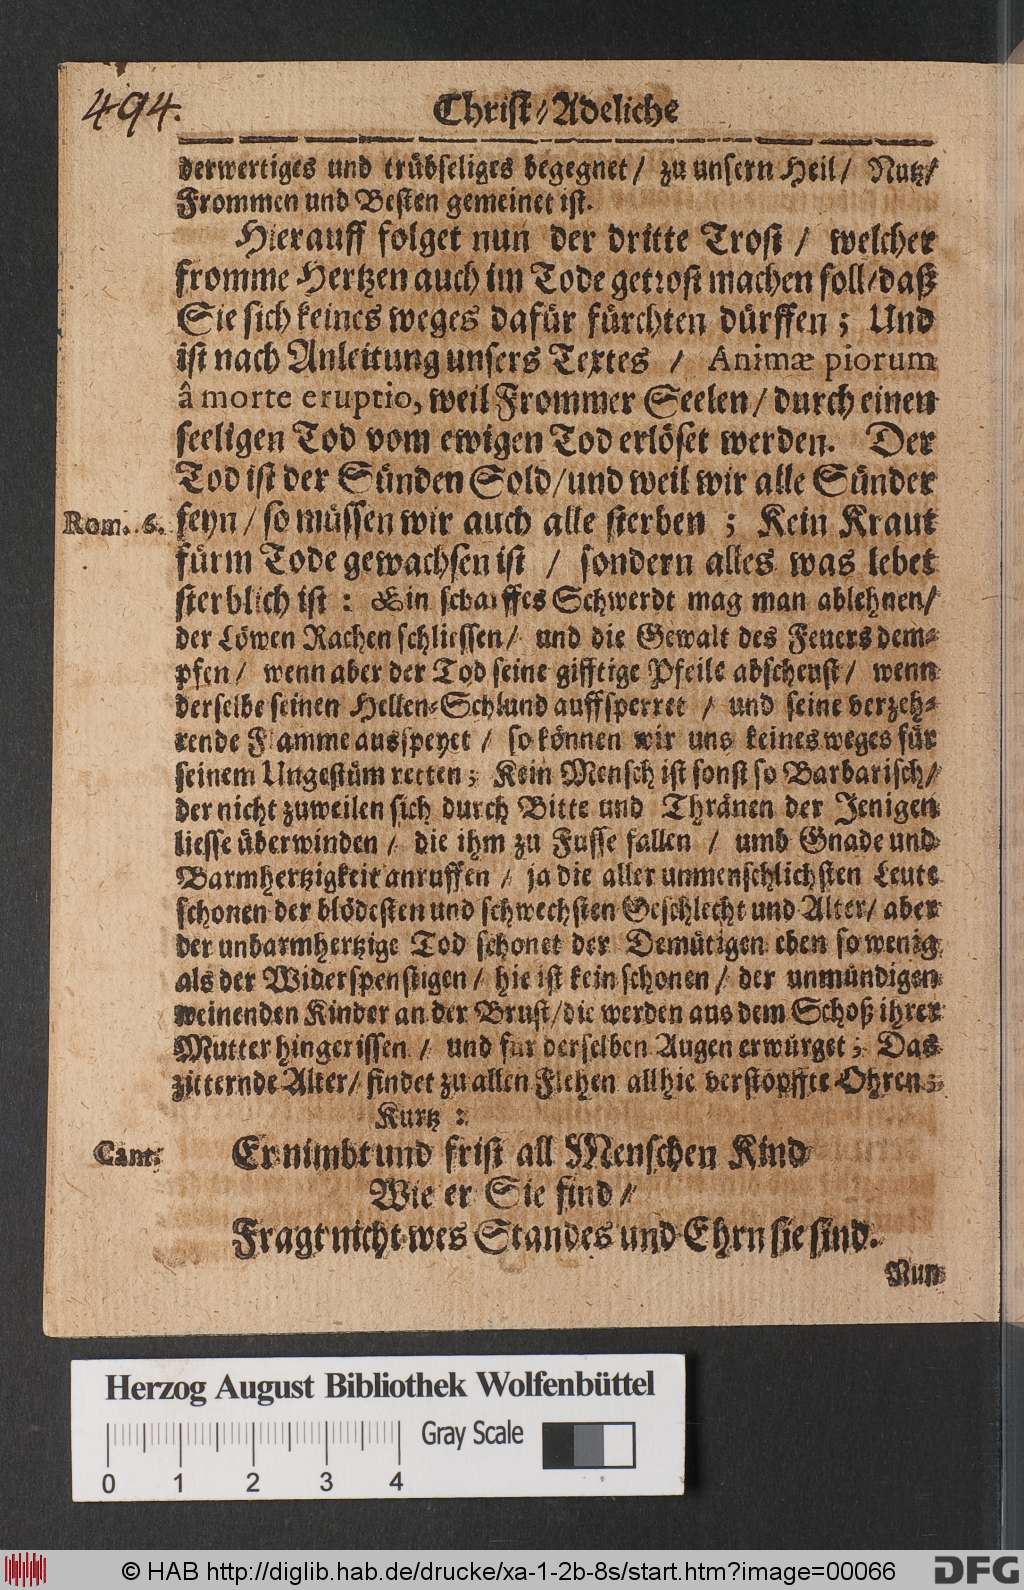 494.
Christ/Adeliche
derwertiges und trübseliges begegnet/ zu unsern Heil/ Nutz/
Frommen und Besten gemeinet ist.
Hierauff folget nun der dritte Trost / welcher
fromme Hertzen auch im Tode getrost machen soll/daß
Sie sich keines weges dafür fürchten dürffen; Und
ist nach Anleitung unsers Textes / Animæ piorum
â morte eruptio, weil Frommer Seelen/ durch einen
seeligen Tod vom ewigen Tod erlöset werden. Der
Tod ist der Sünden Sold/und weil wir alle Sünder
Rom. 6. seyn/ so müssen wir auch alle sterben; Kein Kraut
fürm Tode gewachsen ist / sondern alles was lebet
sterblich ist: Ein scharffes Schwerdt mag man ablehnen/
der Löwen Rachen schliessen/ und die Gewalt des Feuers dem-
pfen/ wenn aber der Tod seine gifftige Pfeile abscheust/ wenn
derselbe seinen Hellen-Schlund auffsperret / und seine verzeh-
rende Flamme ausspeyet / so können wir uns keines weges für
seinem Ungestüm retten; Kein Mensch ist sonst so Barbarisch/
der nicht zuweilen sich durch Bitte und Thränen der Jenigen
liesse überwinden / die ihm zu Fusse fallen / umb Gnade und
Barmhertzigkeit anruffen / ja die aller unmenschlichsten Leute
schonen der blödesten und schwechsten Geschlecht und Alter/ aber
der unbarmhertzige Tod schonet der Demütigen eben so wenig
als der Widerspenstigen/ hie ist kein schonen/ der unmündigen
weinenden Kinder an der Brust/die werden aus dem Schoß ihrer
Mutter hingerissen / und für derselben Augen erwürget; Das
zitternde Alter/ findet zu allen Flehen allhie verstopffte Ohren;
Kurtz:
Cant. Er nimbt und frist all Menschen Kind
Wie er Sie find/
Fragt nicht wes Standes und Ehrn sie sind.
Nun
Herzog August Bibliothek Wolfenbüttel
Gray Scale
0 1 2 3 4
© HAB http://diglib.hab.de/drucke/xa-1-2b-8s/start.htm?image=00066
DFG